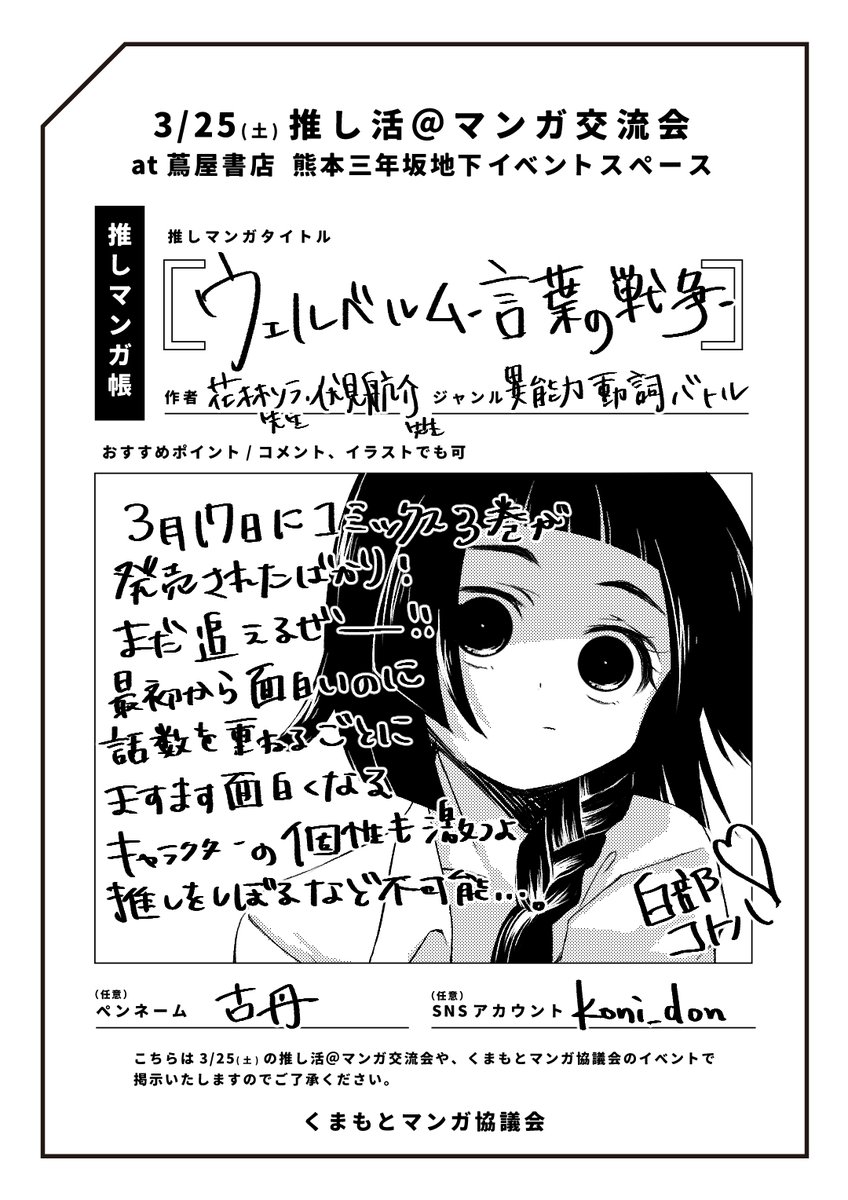 3/25(土)推し活@マンガ交流会
at 蔦屋書店 熊本三年坂地下イベントスペース
推しマンガ帳
推しマンガタイトル
ウェルベルム-言葉の戦争-
作者 花林ソラ先生・伏見航介先生 ジャンル 異能力動詞バトル
おすすめポイント / コメント、イラストでも可
3月17日にコミックス3巻が
発売されたばかり!
まだ追えるぜ——!!
最初から面白いのに
話数を重ねるごとに
ますます面白くなる
キャラクターの個性も激つよ
推しをしぼるなど不可能…。
白部
コトハ♡
(任意)
ペンネーム 古丹
(任意)
SNSアカウント koni_don
こちらは 3/25(土) の推し活@マンガ交流会や、くまもとマンガ協議会のイベントで
掲示いたしますのでご了承ください。
くまもとマンガ協議会